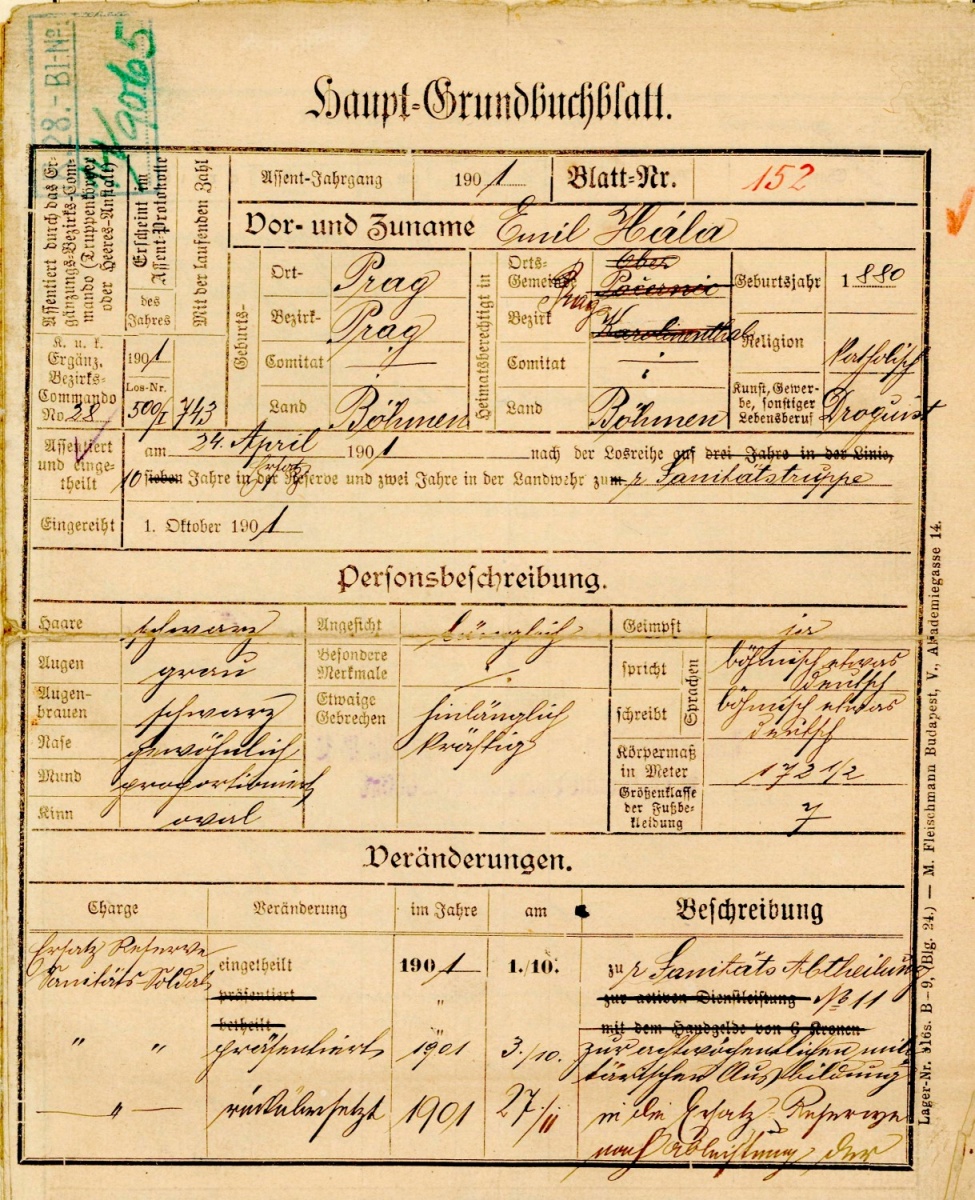 28.- Bl-No:
14/9065
Haupt-Grundbuchblatt.
Assentiert durch das Er-
gänzungs-Bezirks-Com-
mando (Truppenkörper
oder Heeres-Anstalt)
Erscheint im
Assent-Protokolle
des
Jahres
Mit der laufenden Zahl
Assent-Jahrgang 1901 Blatt-Nr. 152
Vor- und Zuname Emil Hála
Geburts-
Ort- Prag
Bezirk- Prag
Comitat
Land Böhmen
Heimatsberechtigt in
Orts-
Gemeinde Ober
Počernic
Prag
Bezirk Karolinenthal
Comitat
Land Böhmen
Geburtsjahr 1880
Religion katholisch
Kunst, Gewer-
be, sonstiger
Lebensberuf Droguist
K. u. k.
Ergänz.
Bezirks-
Commando
No 28
1901
Los-Nr.
500/I
743
Assentiert
und einge-
theilt
am 24. April 1901 nach der Losreihe auf drei Jahre in der Linie,
10 sieben Jahre in der Ersatz Reserve und zwei Jahre in der Landwehr zum r Sanitätstruppe
Eingereiht 1. Oktober 1901
Personsbeschreibung.
Haare schwarz
Augen grau
Augen-
brauen schwarz
Nase gewöhnlich
Mund proportioniert
Kinn oval
Angesicht länglich
Besondere
Merkmale
Etwaige
Gebrechen hinlänglich
kräftig
Geimpft ja
Sprachen
spricht böhmisch etwas
deutsch
schreibt böhmisch etwas
deutsch
Körpermaß
in Meter 172 1/2
Größenklasse
der Fußbe-
kleidung 7
Veränderungen.
Charge Veränderung im Jahre am Beschreibung
Ersatz Reserve
Sanitäts-Soldat eingetheilt 1901 1./10. zu r Sanitäts Abtheilung
präsentiert " zur activen Dienstleistung No 11
betheilt mit dem Handgelde von 6 Kronen
" " präsentiert 1901 3./10. zur achtwöchentlichen mili
tärischen Ausbildung
" rückübersetzt 1901 27./11 in die Ersatz-Reserve
nach Ableistung der
Lager-Nr. 916s. B–9, (Blg. 24.) — M. Fleischmann Budapest, V., Akademiegasse 14.